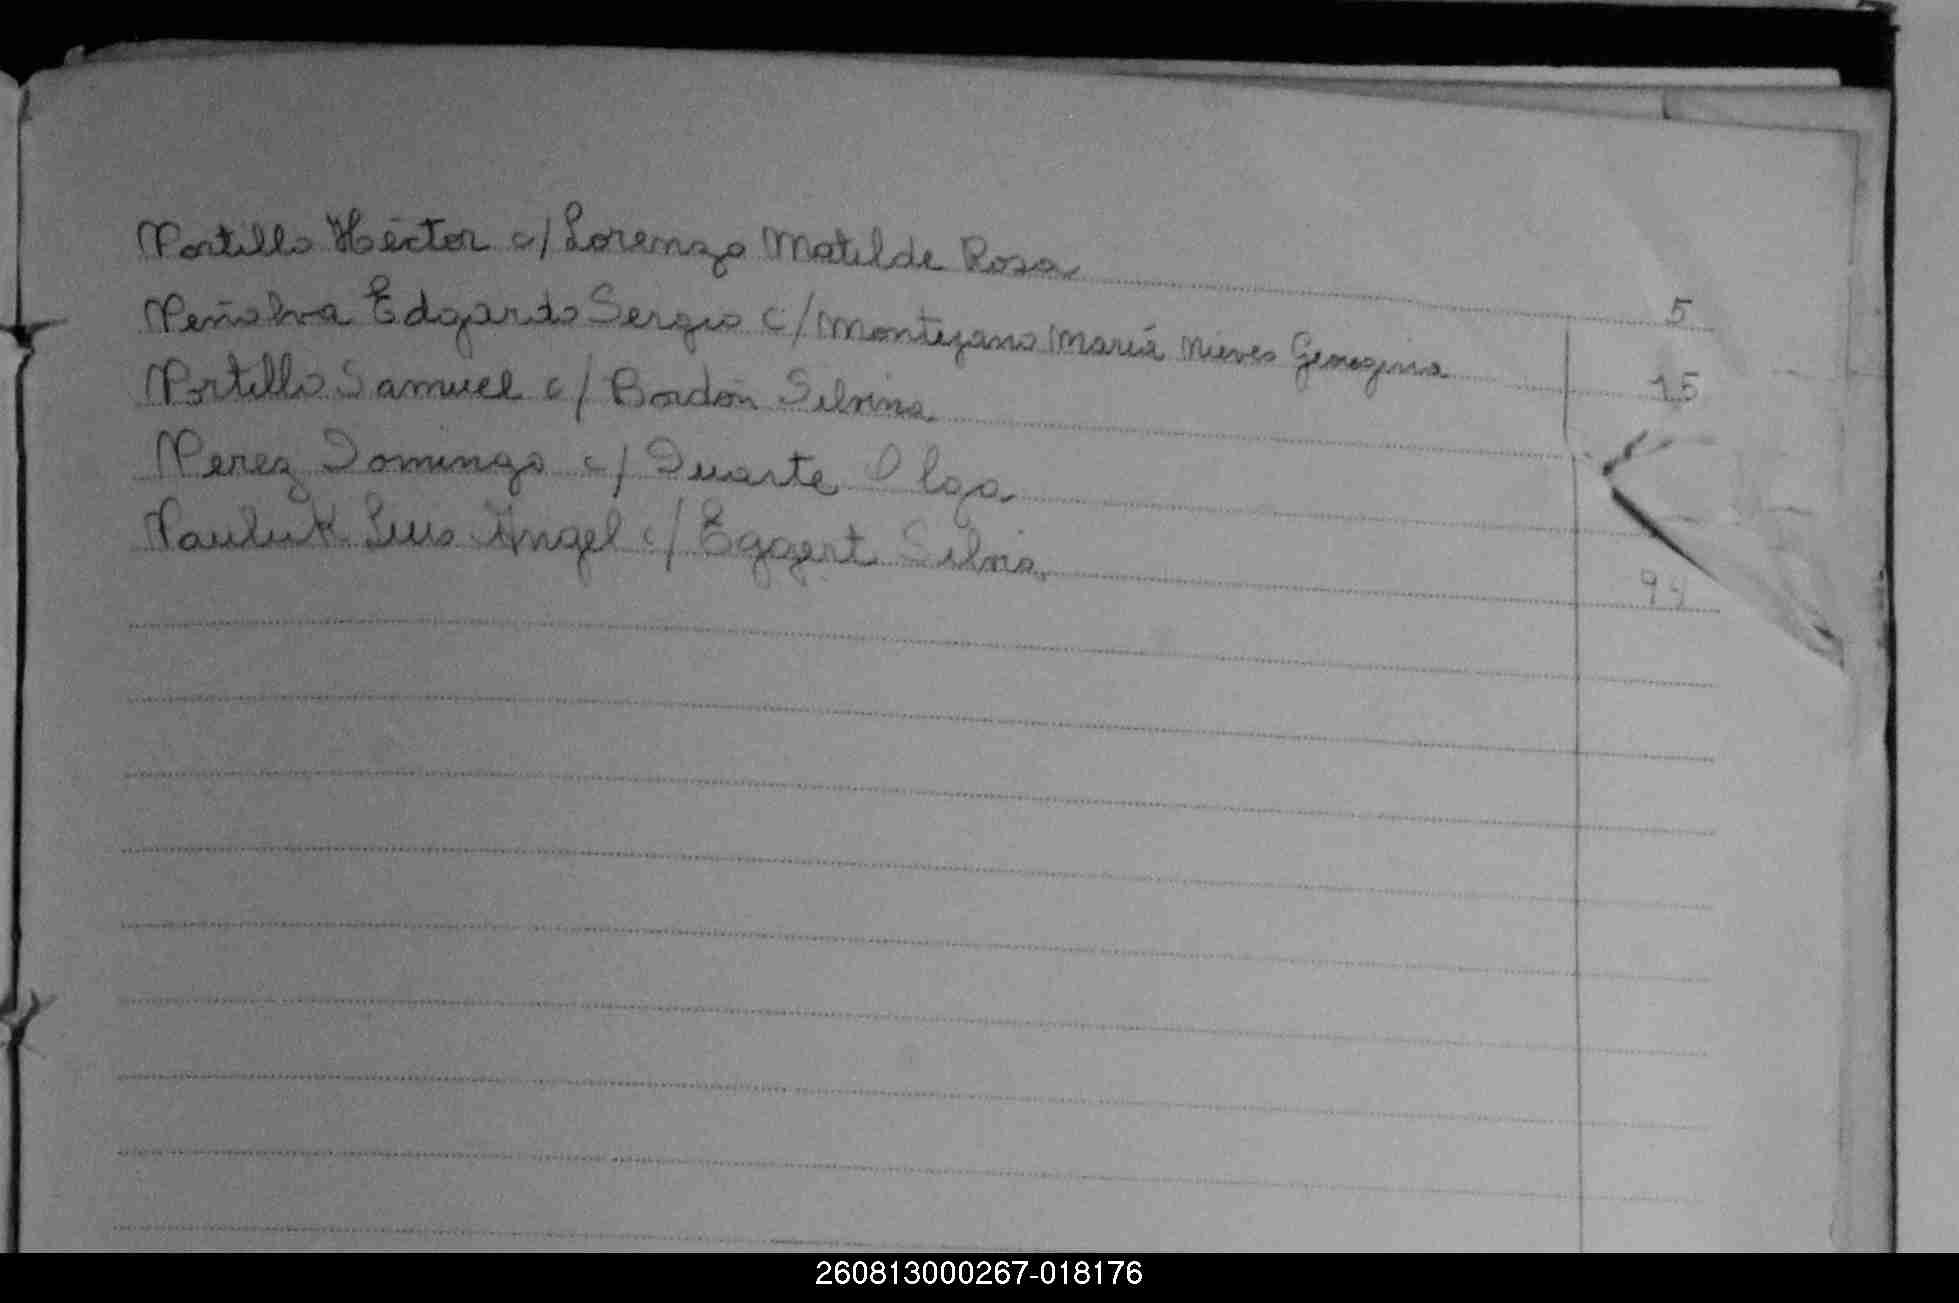 Portillo Héctor c/ Lorenzo Matilde Rosa 5
Peñalva Edgardo Sergio c/ Montejano María Nieves Georgina 15
Portillo Samuel c/ Bordón Silvina
Perez Domingo c/ Duarte Olga
Pauluk Luis Angel c/ Eggert Silvia 94
260813000267-018176